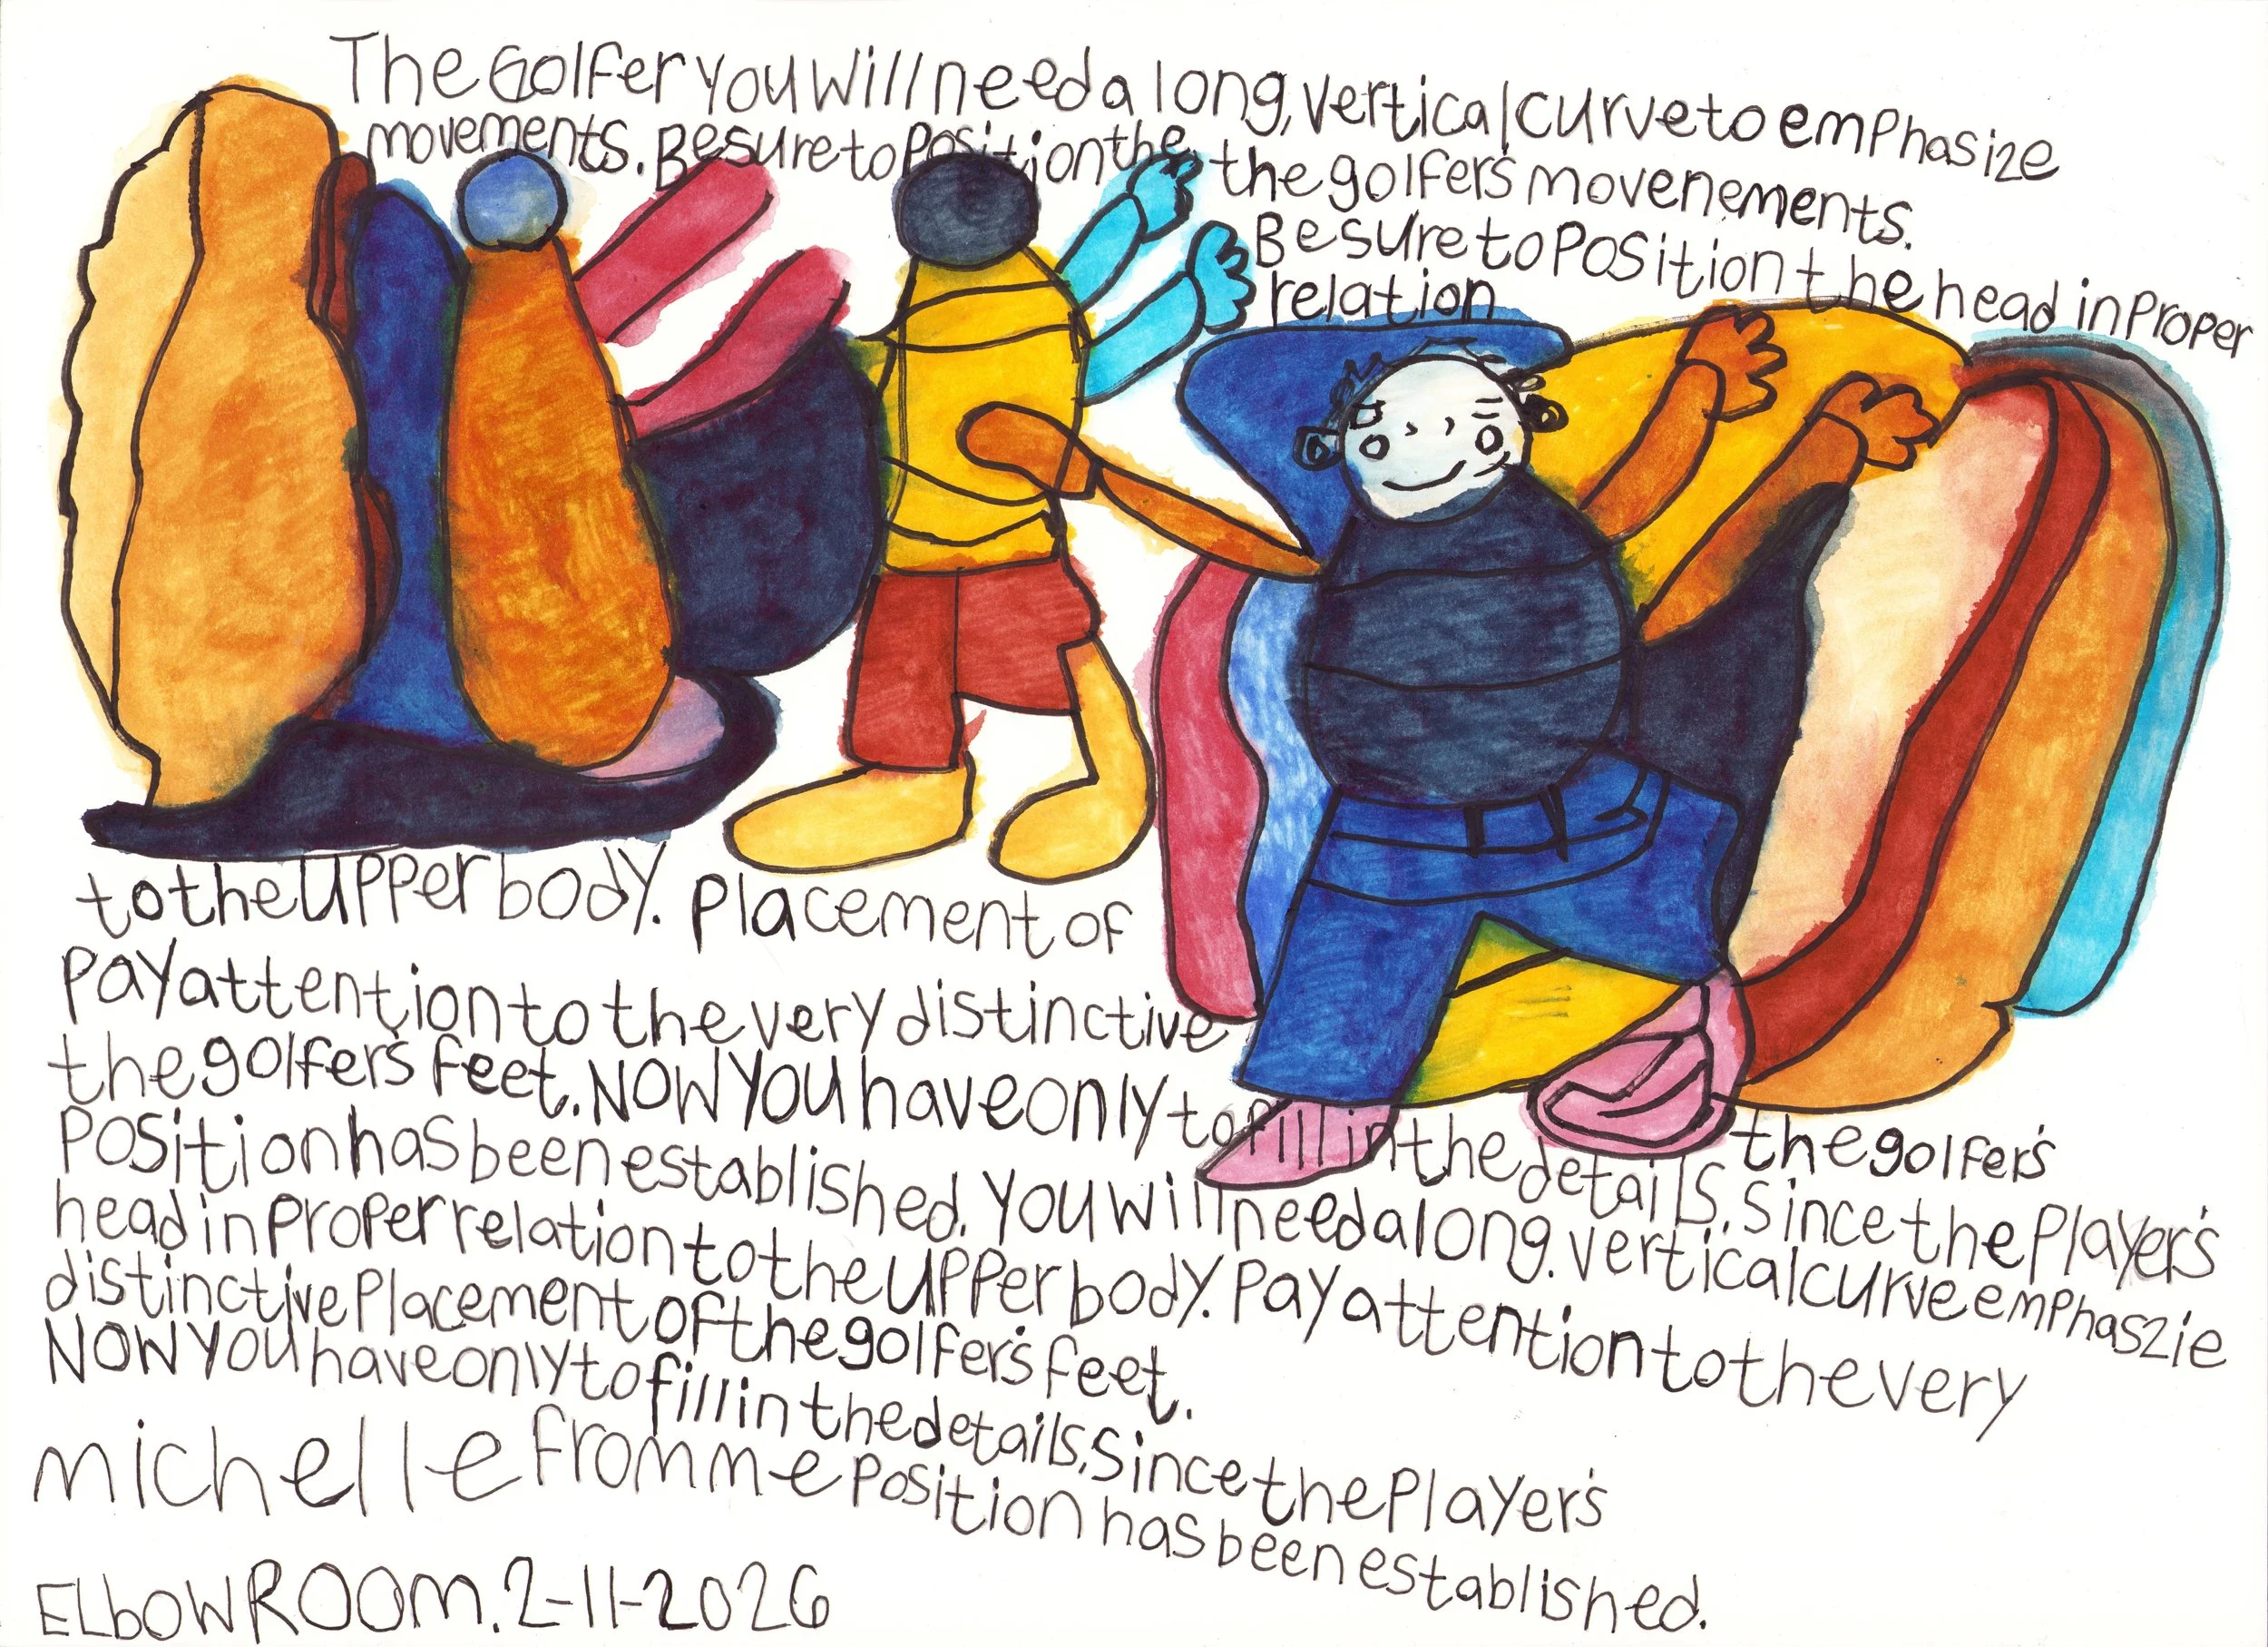 The Golfer you will need a long, vertical curve to emphasize
movements. Be sure to position the the golfer's movenements.
Be sure to position the head in proper
relation
to the upper body. placement of
pay attention to the very distinctive
the golfer's feet. Now you have only to fill in the details. the golfer's
position has been established. you will need a long. vertical curve emphaszie
head in proper relation to the upper body. pay attention to the very
distinctive placement of the golfer's feet.
Now you have only to fill in the details. Since the player's
Since the player's
michelle fromme position has been established.
ELbow ROOM. 2-11-2026